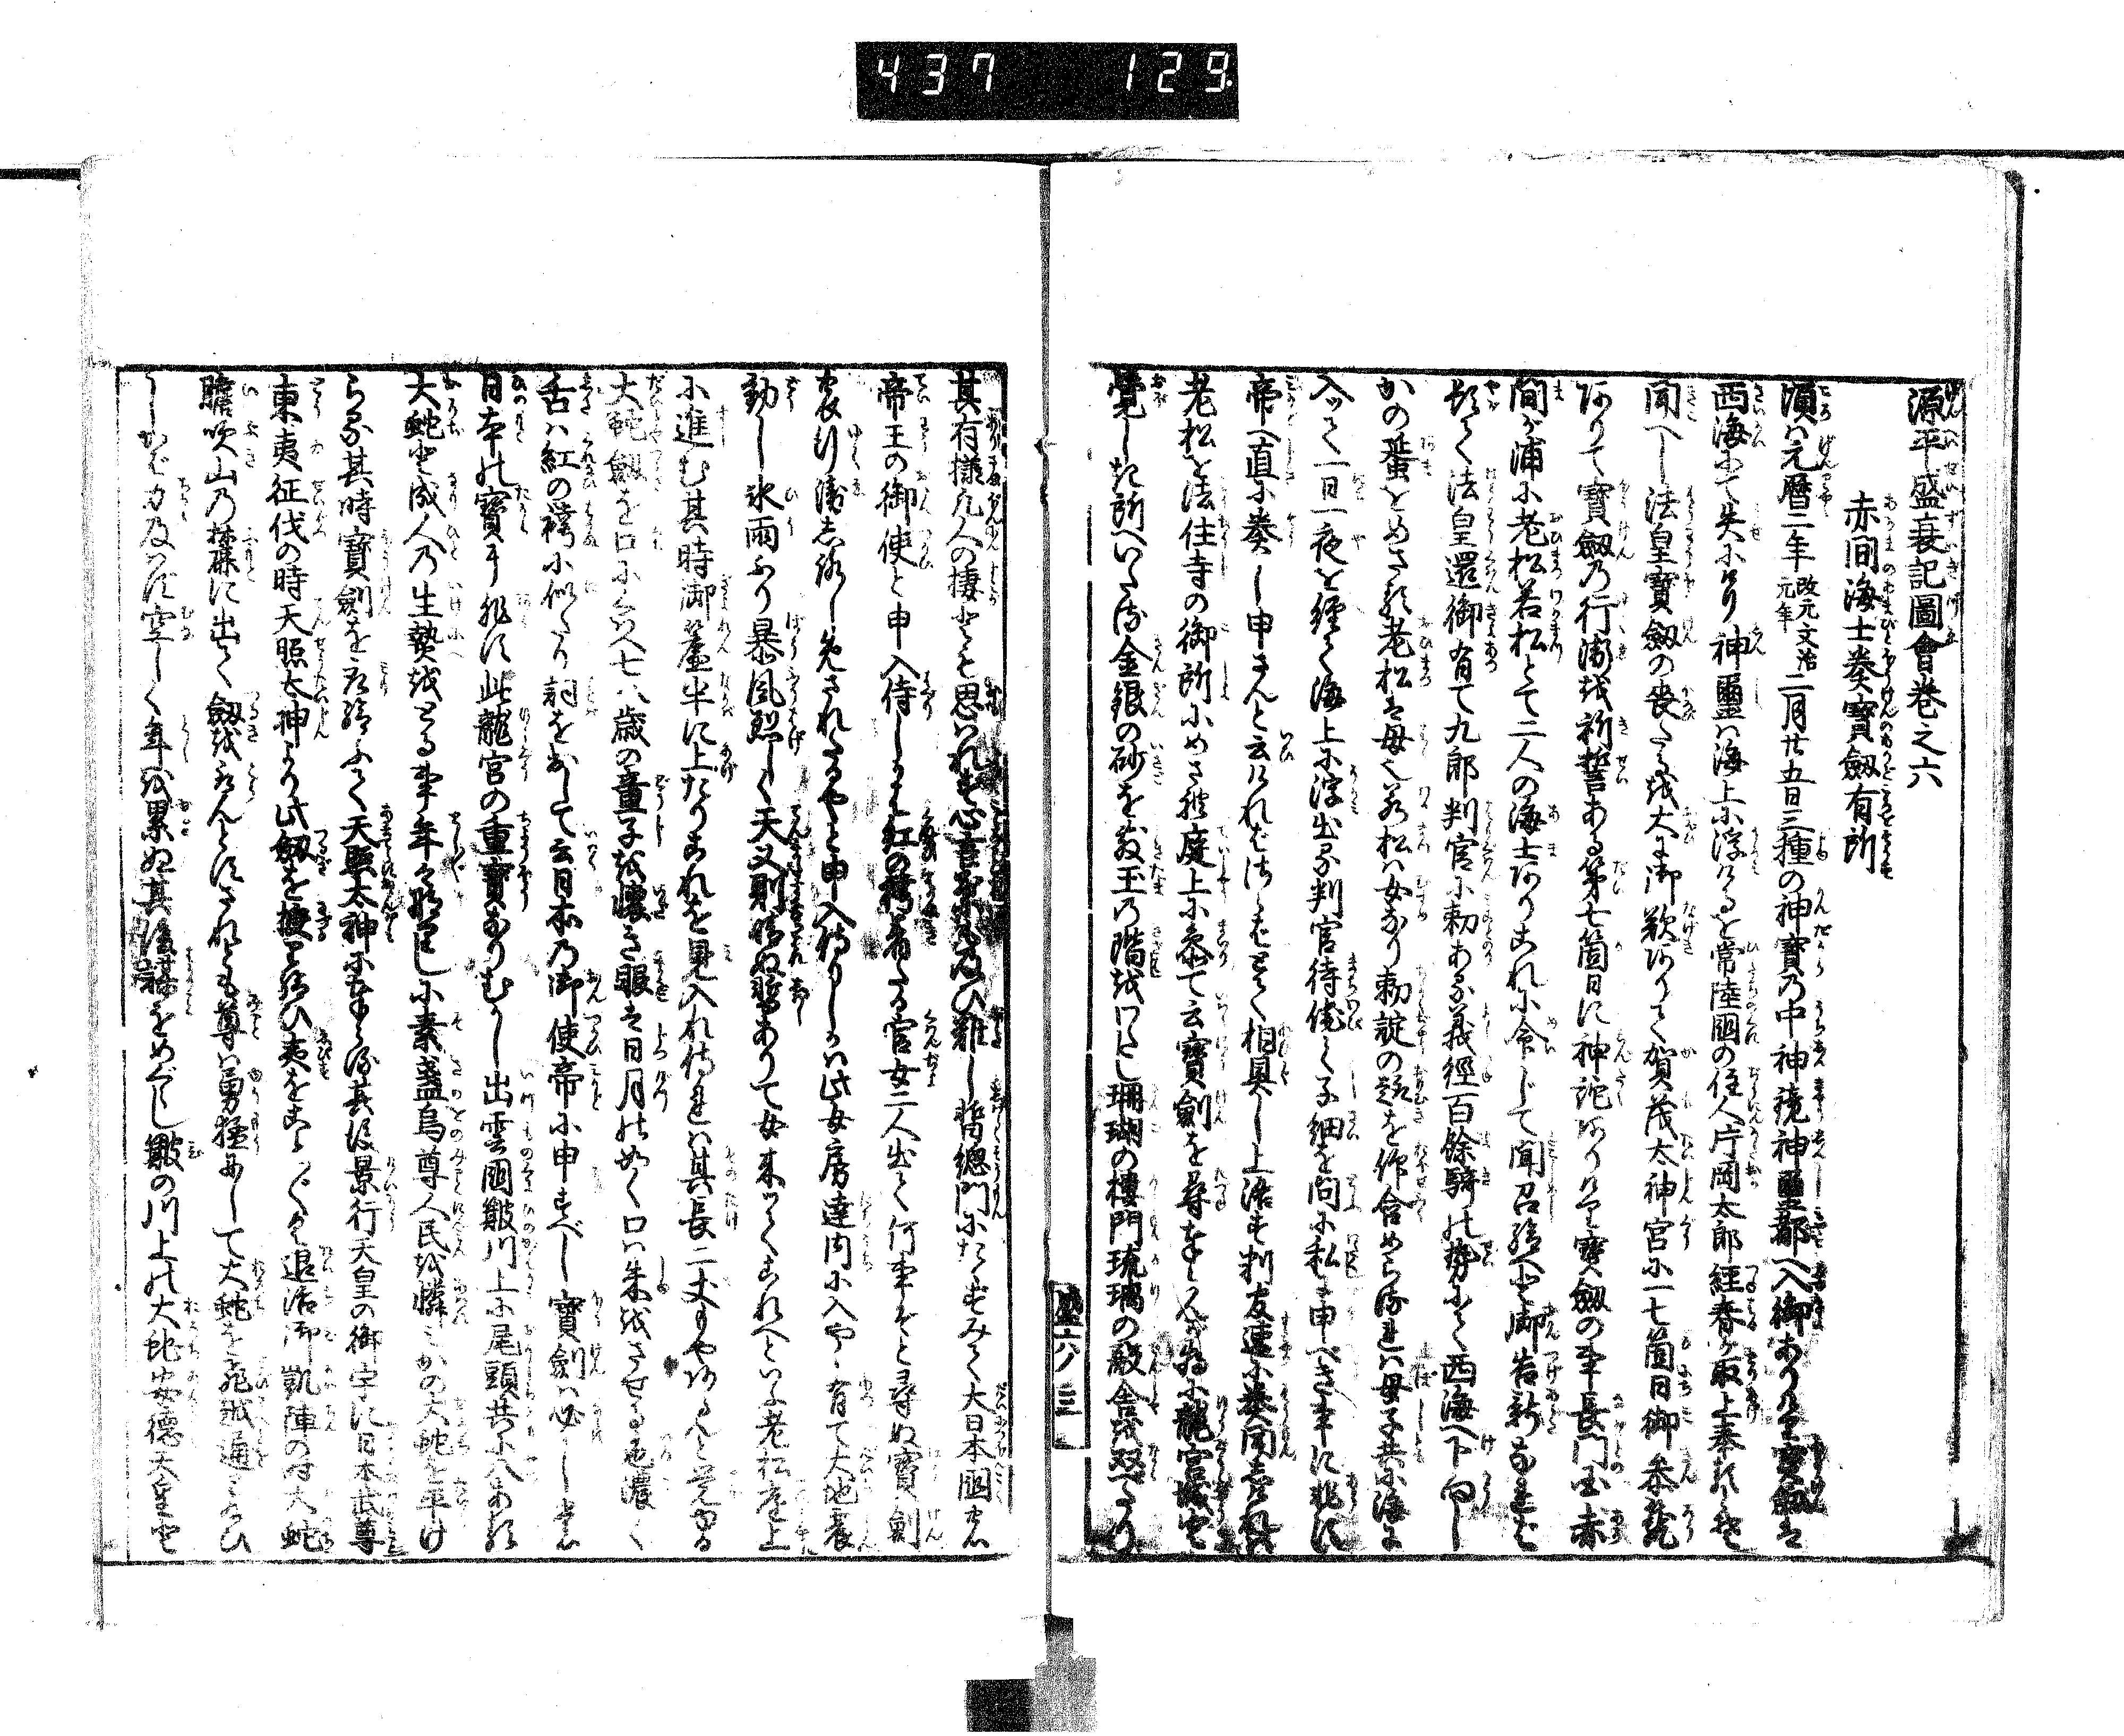 437 129
源平盛衰記圖會巻之六
赤間海士奏寶劔有所
頃ハ元暦二年改元文治元年二月廿五日三種の神寶乃中神鏡神璽都へ入御ありけり寳劔は
西海にて失にけり神璽ハ海上に浮けるを常陸國の住人片岡太郎經春が取上奉れりと
聞へし法皇寶劔の喪たるを大に御歎ありて賀茂太神宮に一七箇日御参籠
ありて寶劔乃行衛を祈誓ある第七箇日に神詫ありけり寳劔の事長門国赤
間が浦に老松若松とて二人の海士ありこれに命じて聞召給へと御告新なりけれど
頓て法皇還御有て九郎判官に勅ある義經百餘騎の勢にて西海へ下向し
かの蜑をめさる老松は母也若松ハ女なり勅諚の趣を作含めらるれバ母子共に海に
入て一日一夜を經て海上に浮出る判官待侘て子細を問に私に申べき事に非ず
帝へ直に奏し申さんと云けれバさらバとて相具し上洛す判友速に奏聞
老松を法住寺の御所にめされ庭上に参て云寳劍を尋奉らんが為に龍宮城と
覚しき所へいたる金銀の砂を敷玉乃階をわたし珊瑚の樓門琉璃の殿舎を双べたり
盛六ノ三
其有様凡人の棲とも思はれず心言葉も及び難し暫惣門にたゝずみて大日本國
帝王の御使と申入侍しかバ紅の袴着たる官女二人出て何事ぞと尋ぬ寳劍
の行衛しろし免されたるやと申入侍りしかハ此女房達内に入やゝ有て大地震
動し氷雨ふり暴風烈しく天又則晴ぬ暫ありて女来りてこれへといふ老松庭上
に進む其時御簾半に上たりこれを見入れ侍れバ其長二丈もやあるらんと覚ゆる
大蛇劔を口にくハへ七八歳の童子を懐き眼は日月の如く口ハ朱をさせる色濃く
舌ハ紅の袴に似たり詞を出して云日本乃御使帝に申すべし寳劍ハ必しも
日本の寳に非ず此龍宮の重寳なりむかし出雲國簸川上に尾頭共に八ある
大蛇と成人乃生贄をとる事年々なりしに素盞烏尊人民を憐ミかの大蛇を平け
らる其時寶劍を取給ふて天照太神に奉る其後景行天皇の御宇に日本武尊
東夷征伐の時天照太神より此劔を授け給ひ夷をことごとく退治御凱陣の時大蛇
膽吹山乃麓に出て劔を取んとすされども尊ハ勇猛にして大蛇を飛越通り給ひ
しかば力及バず空しく年を累ぬ其後謀をめぐらし簸の川上の大蛇安徳天皇と